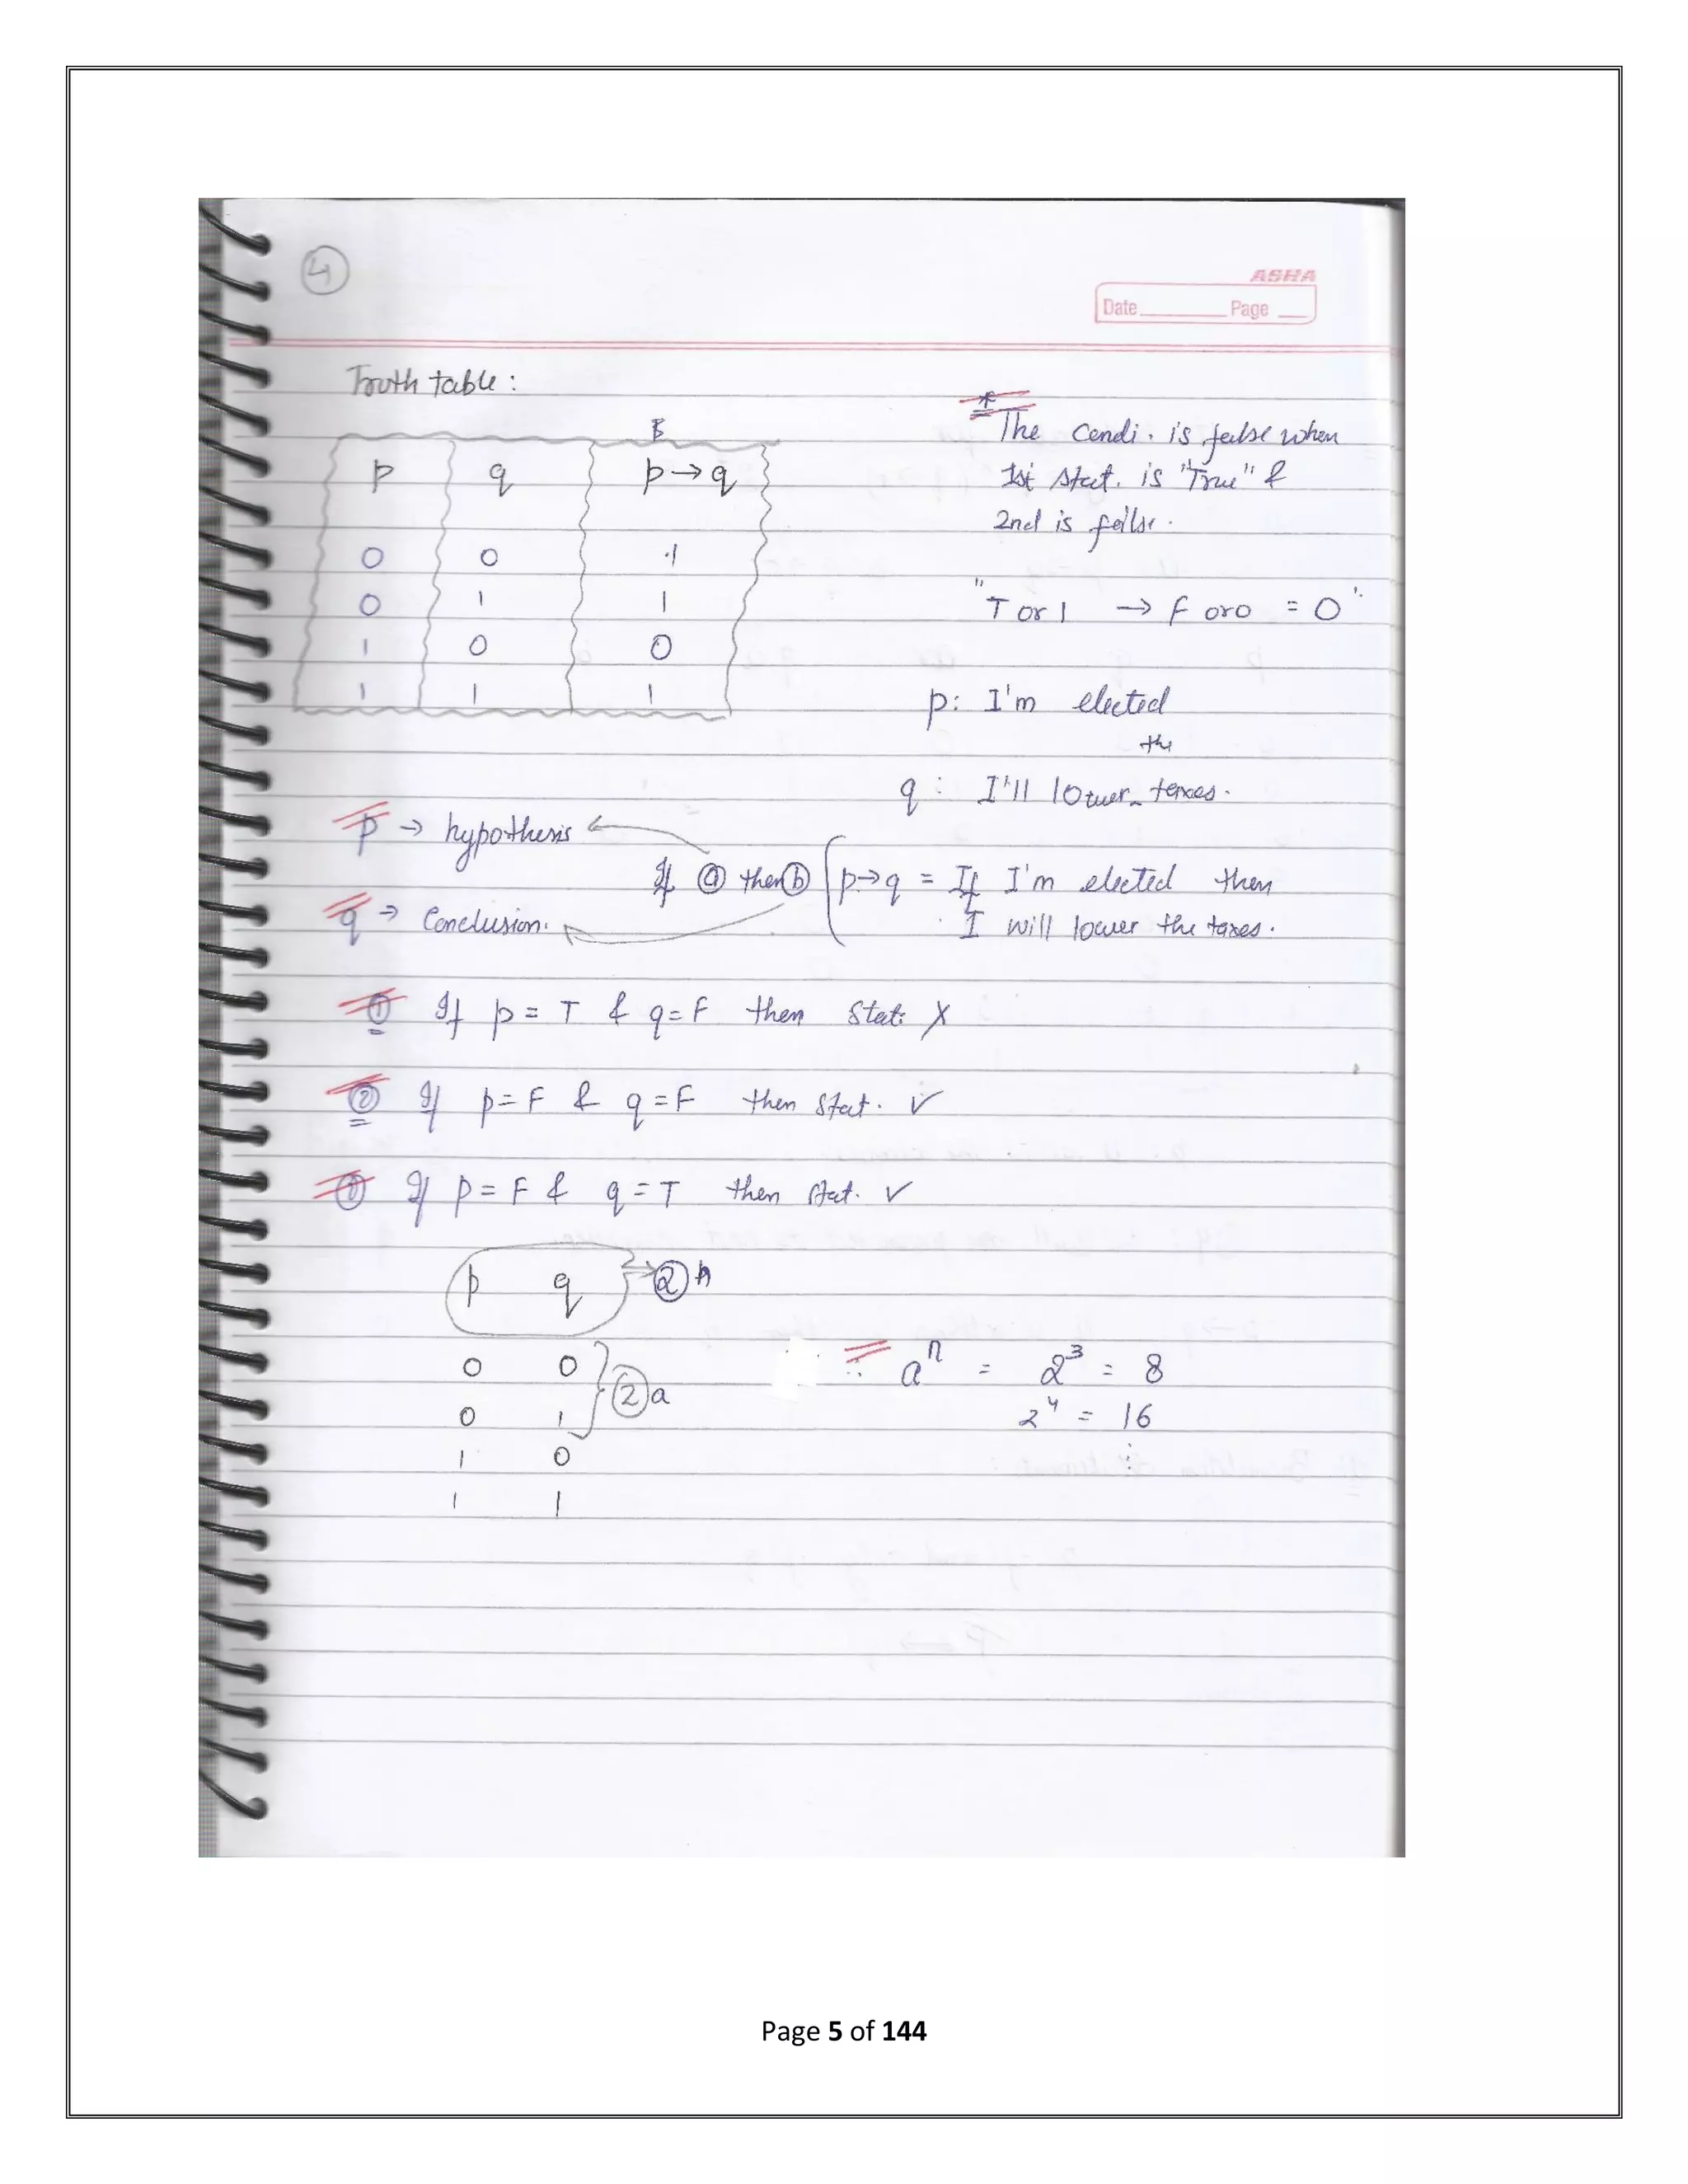 4
ASHA
Date Page
Truth table :
* The Condi. is false when
1st stat. is "True" &
2nd is false.
p q p → q
0 0 1
0 1 1
1 0 0
1 1 1
"T or 1 → F or 0 = 0"
p: I'm elected
the
q : I'll lower taxes.
p → hypothesis
If a then b p→q = If I'm elected then
q → Conclusion.
I will lower the taxes.
1 If p = T & q = F then Stat. X
2 If p = F & q = F then Stat. ✓
3 If p = F & q = T then stat. ✓
p q → 2 n
0 0
2 a
0 1
1 0
1 1
∴ aⁿ = 2³ = 8
2⁴ = 16
⋮
Page 5 of 144